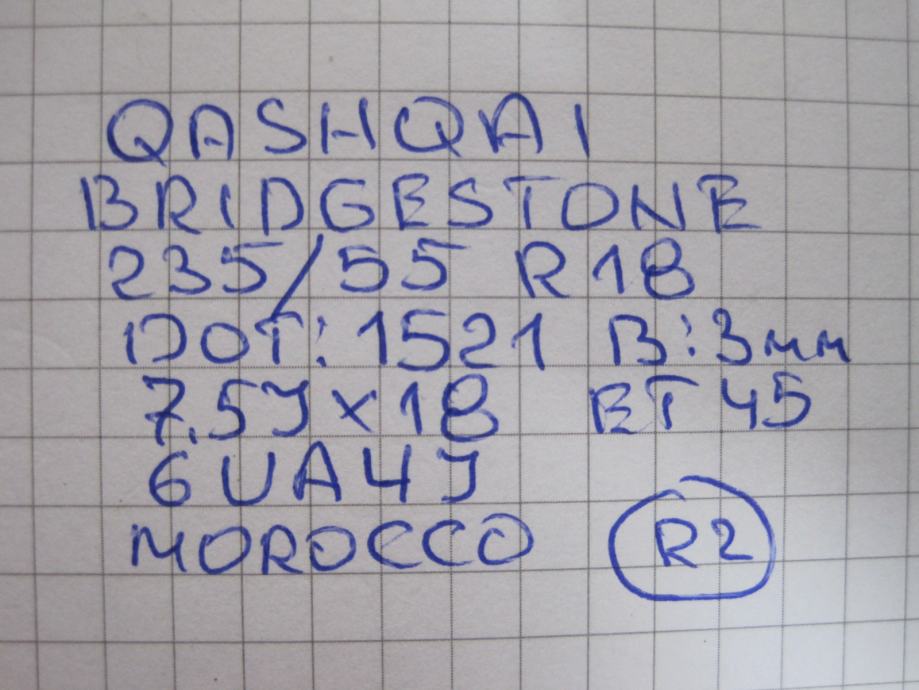 QASHQAI
BRIDGESTONE
235/55 R18
DOT: 1521 B: 3mm
7.5J x 18 ET 45
6UA4J
MOROCCO R2